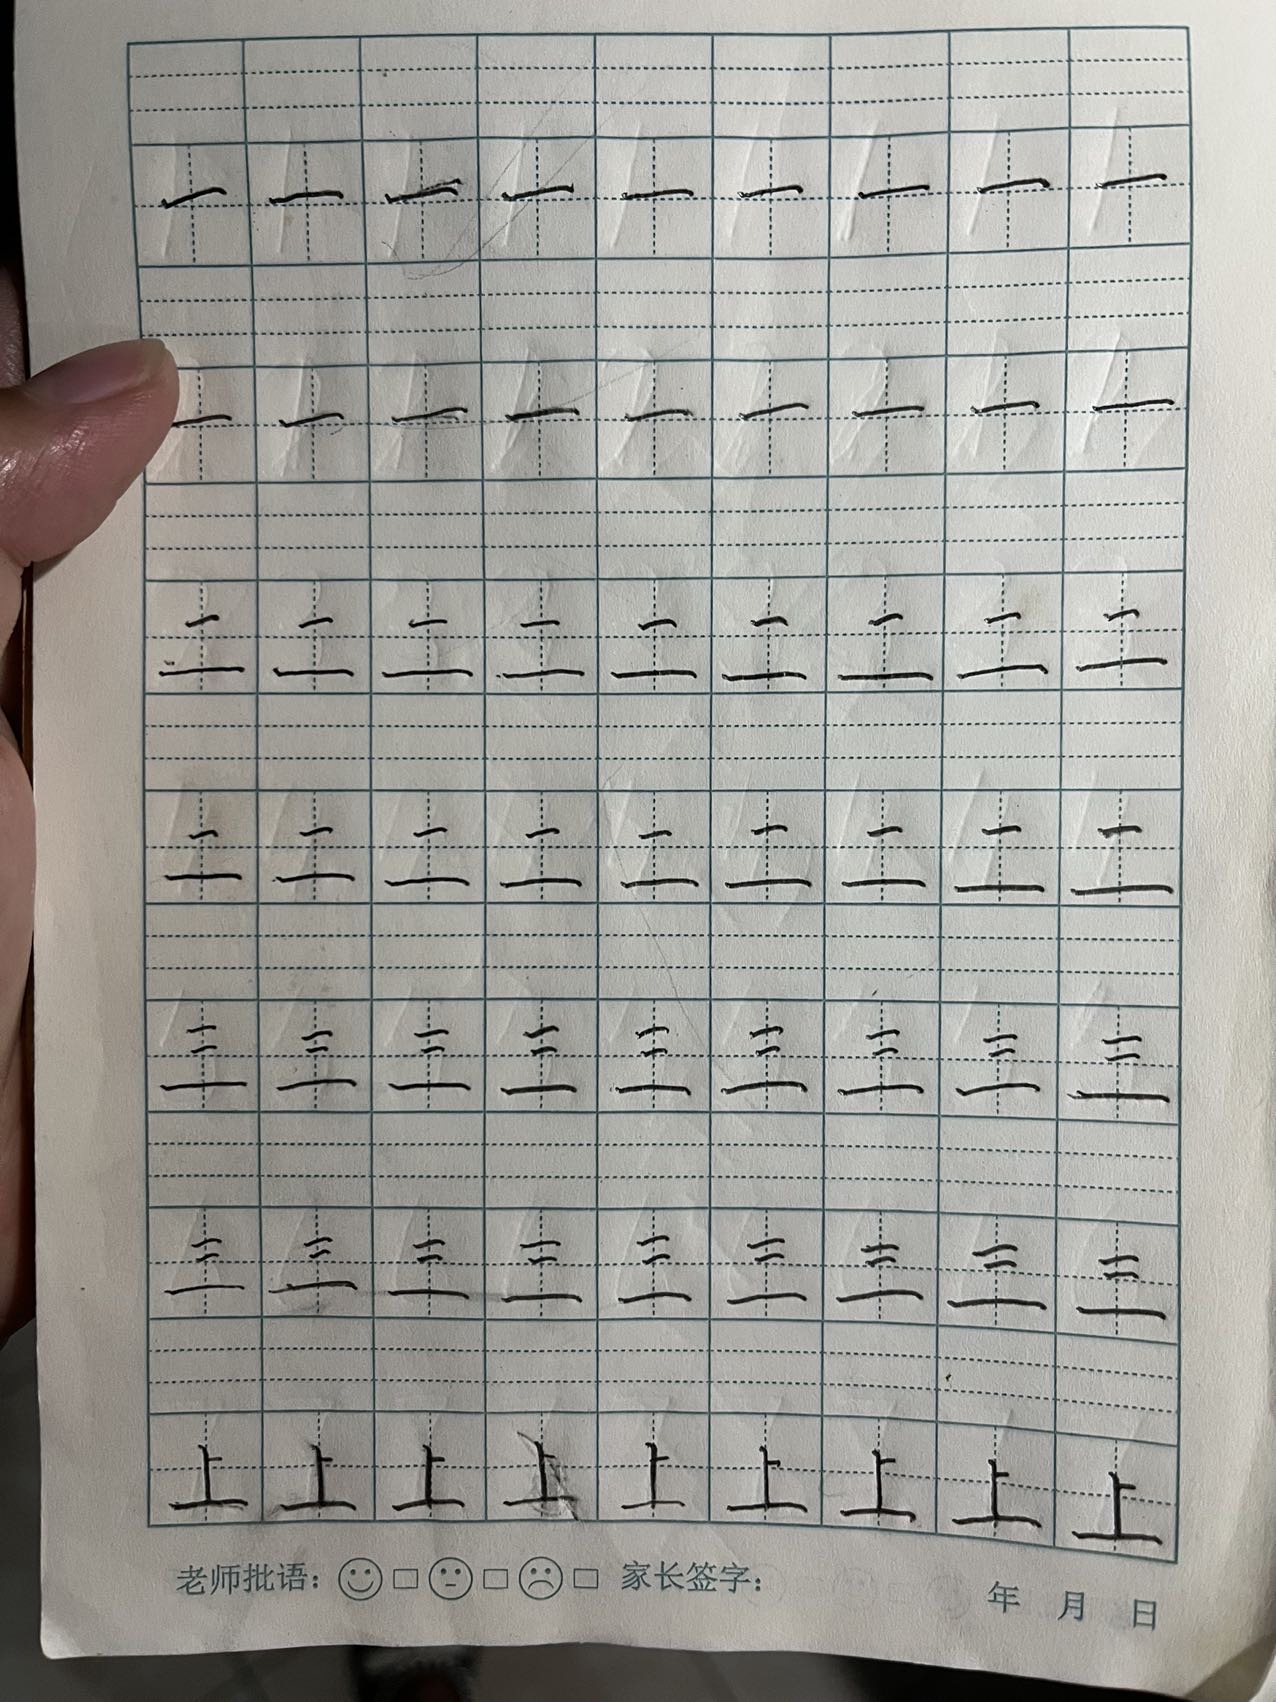 一 一 一 一 一 一 一 一 一
一 一 一 一 一 一 一 一 一
二 二 二 二 二 二 二 二 二
二 二 二 二 二 二 二 二 二
三 三 三 三 三 三 三 三 三
三 三 三 三 三 三 三 三 三
上 上 上 上 上 上 上 上 上
老师批语： 家长签字： 年 月 日